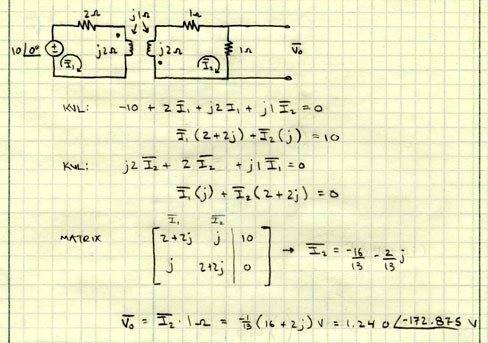 2Ω j1Ω 1Ω
10∠0° ± j2Ω j2Ω 1Ω V̅₀
I̅₁ I̅₂
KVL: -10 + 2 I̅₁ + j2 I₁ + j1 I̅₂ = 0
I̅₁ (2+2j) + I̅₂ (j) = 10
KVL: j2 I̅₂ + 2 I̅₂ + j1 I̅₁ = 0
I̅₁ (j) + I̅₂ (2+2j) = 0
I̅₁ I̅₂
MATRIX [ 2+2j j | 10
j 2+2j | 0 ] → I̅₂ = -16/13 - 2/13 j
V̅₀ = I̅₂ · 1Ω = -1/13 (16 + 2j) V = 1.240 ∠-172.875 V